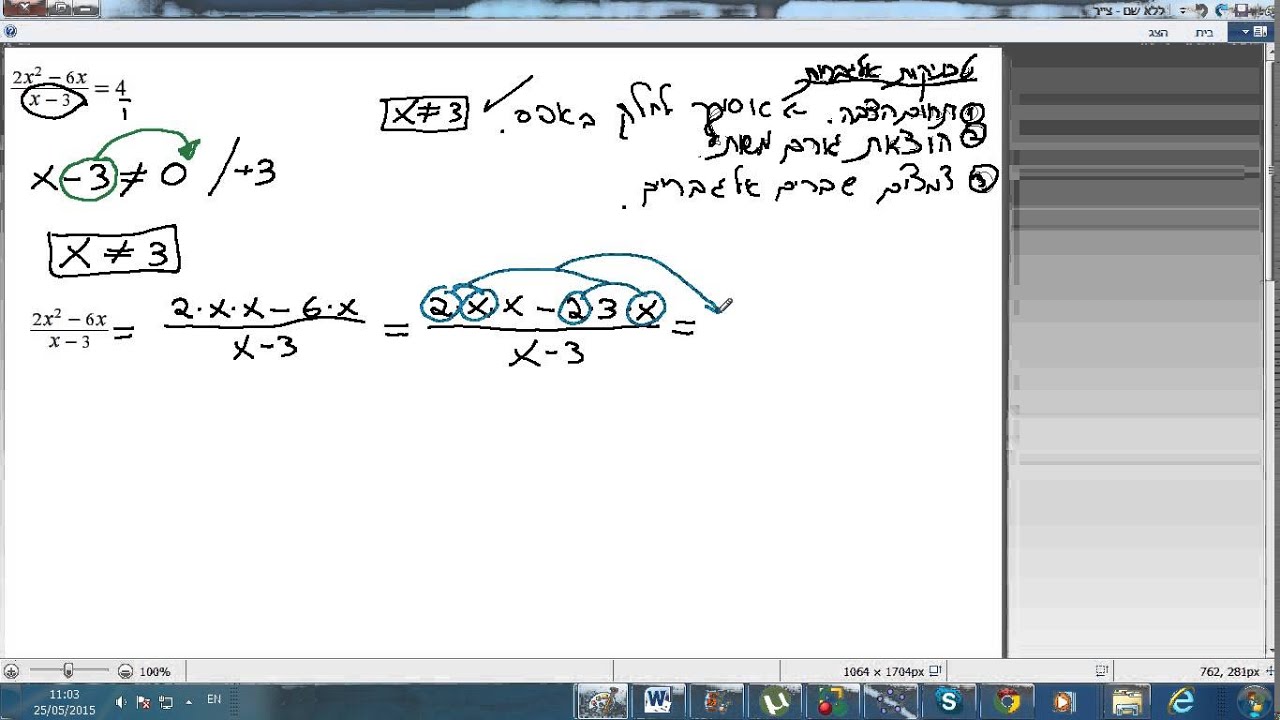 ללא שם - צייר
בית
הצג
2x² − 6x / x − 3 = 4 / 1
x − 3 ≠ 0 / +3
x ≠ 3
x ≠ 3 ✓
טכניקות אלגבריות
① תחום הצבה. ← אסור לחלק באפס.
② הוצאת גורם משותף.
③ צמצום שברים אלגבריים.
2x² − 6x / x − 3 = 2·x·x − 6·x / x − 3 = 2·x·x − 2 3 x / x − 3 =
100%
1064 × 1704px
762, 281px
11:03
25/05/2015
EN